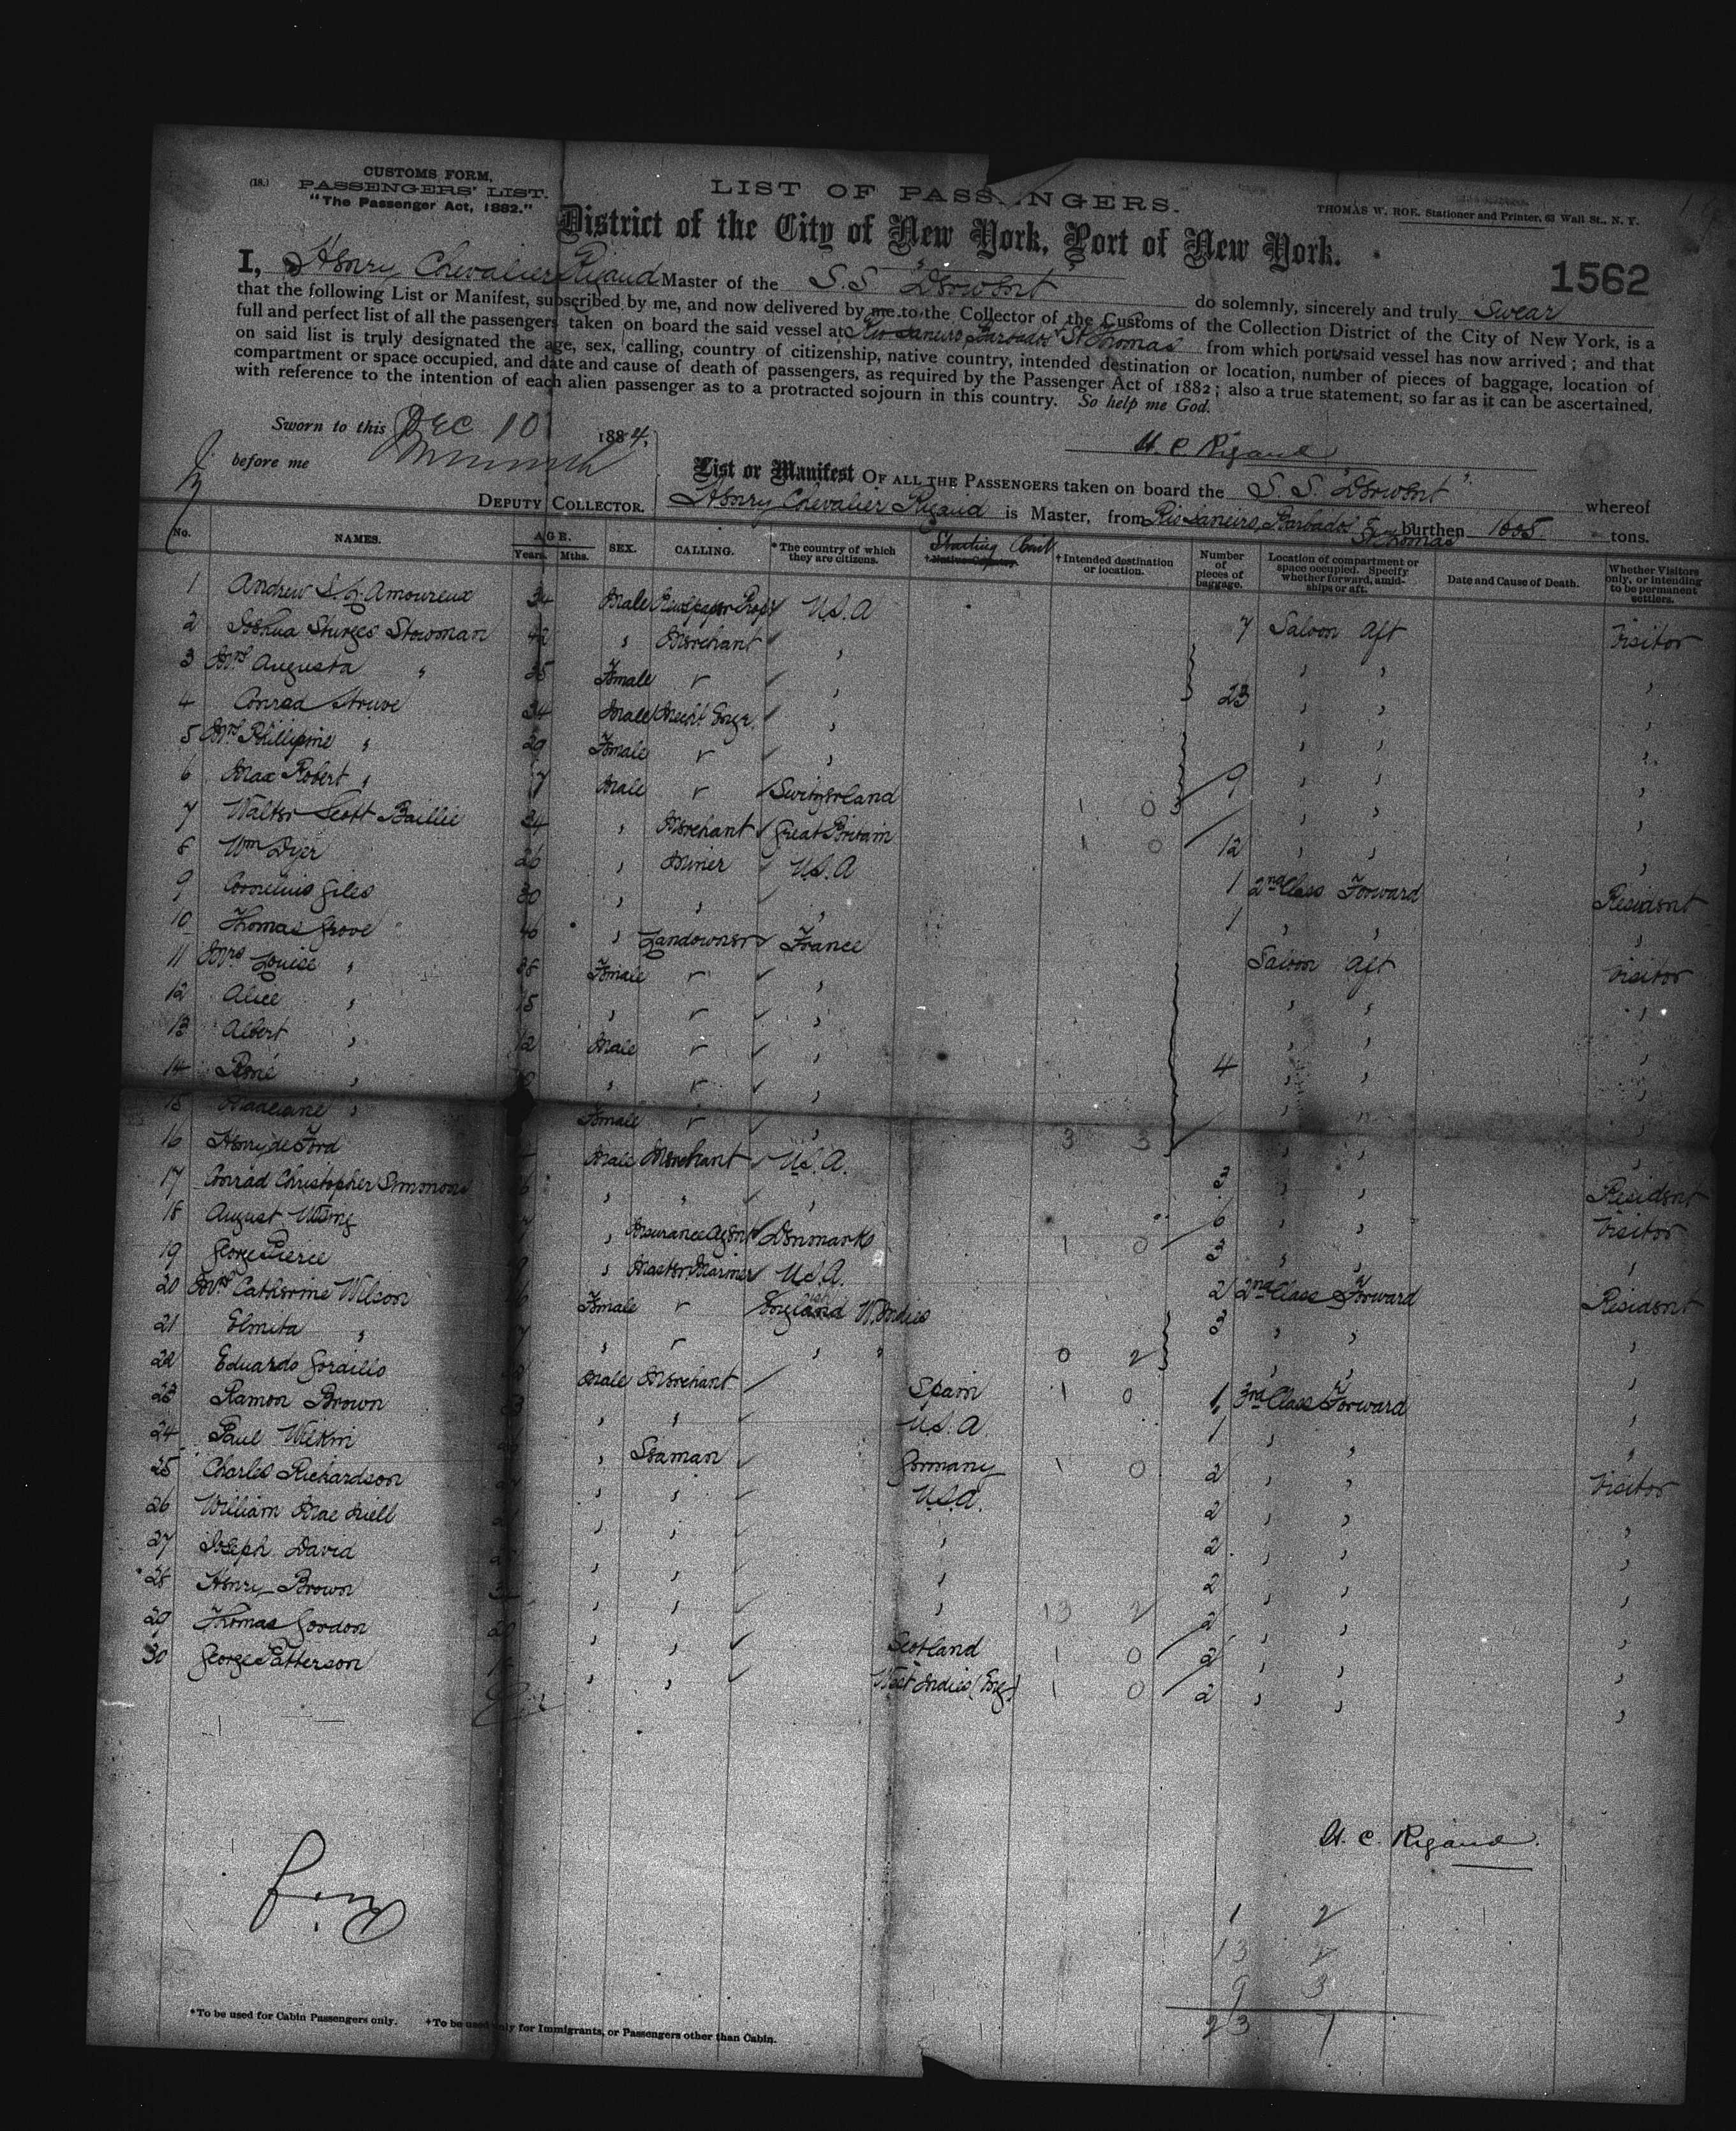 CUSTOMS FORM,
(18.) PASSENGERS' LIST.
"The Passenger Act, 1882."
LIST OF PASSENGERS.
THOMAS W. ROE, Stationer and Printer, 63 Wall St., N. Y.
District of the City of New York, Port of New York.
1562
I, Henry Chevalier Rigaud Master of the S.S "Derwent" do solemnly, sincerely and truly Swear
that the following List or Manifest, subscribed by me, and now delivered by me to the Collector of the Customs of the Collection District of the City of New York, is a
full and perfect list of all the passengers taken on board the said vessel at Rio Janeiro Barbados & St Thomas from which port said vessel has now arrived; and that
on said list is truly designated the age, sex, calling, country of citizenship, native country, intended destination or location, number of pieces of baggage, location of
compartment or space occupied, and date and cause of death of passengers, as required by the Passenger Act of 1882; also a true statement, so far as it can be ascertained,
with reference to the intention of each alien passenger as to a protracted sojourn in this country. So help me God.
Sworn to this DEC 10 1884,
before me
H. C. Rigaud
DEPUTY COLLECTOR.
List or Manifest OF ALL THE PASSENGERS taken on board the S. S. "Derwent" whereof
Henry Chevalier Rigaud is Master, from Rio Janeiro, Barbados & St Thomas burthen 1605 tons.
No. NAMES. AGE. Years. Mths. SEX. CALLING. *The country of which they are citizens. Starting Point †Native Country. †Intended destination or location. Number of pieces of baggage. Location of compartment or space occupied. Specify whether forward, amidships or aft. Date and Cause of Death. Whether Visitors only, or intending to be permanent settlers.
1 Andrew Amoureux 34 Male Newspaper Propr U.S.A 7 Saloon Aft Visitor
2 Joshua Sturges Stowman 42 " Merchant " " " "
3 Mrs Augusta " 35 Female " 23 " " "
4 Conrad Struve 34 Male Mechl Engr. " " " "
5 Mrs Phillipine " 29 Female " " " "
6 Max Robert " 7 Male Switzerland 1 0 9 " " "
7 Walter Scott Baillie 24 " Merchant Great Britain 1 0 12 " " "
8 Wm Dyer 26 " Miner U.S.A 1 2nd Class Forward Resident
9 Cornelius Giles 30 " " " 1 " " "
10 Thomas Grove 46 " Landowner France Saloon Aft Visitor
11 Mrs Louise " 38 Female " " " "
12 Alice " 15 " " " " "
13 Albert " 12 Male " 4 " " "
14 René " " " " " "
15 Madeleine " Female " 3 3 " " "
16 Henry de Ford Male Merchant U.S.A. 3 " " Resident
17 Conrad Christopher Simmons " " " 6 " " Visitor
18 August " Insurance Agent Denmark 1 0 3 " " "
19 George Pierce " Master Mariner U.S.A. 2 2nd Class Forward Resident
20 Mrs Catherine Wilson Female England W. Indies 3 " " "
21 Elmita " " " " 0 2 " " "
22 Eduardo Male Merchant Spain 1 0 1 3rd Class Forward "
23 Ramon Brown " " U.S.A. 1 " " "
24 Paul Wilkin " Seaman Germany 1 0 2 " " Visitor
25 Charles Richardson " " U.S.A. 2 " " "
26 William Mac Niell " " " 2 " " "
27 Joseph David " " " 2 " " "
28 Henry Brown " " " 13 2 2 " " "
29 Thomas Gordon " " Scotland 1 0 2 " " "
30 George Patterson " " West Indies (Eng) 1 0 2 " " "
H. C. Rigaud.
1 2
13 2
9 3
23 7
*To be used for Cabin Passengers only. †To be used only for Immigrants, or Passengers other than Cabin.